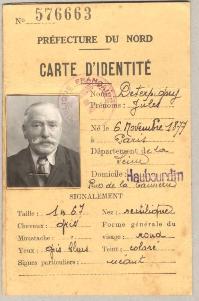 No 576663
PRÉFECTURE DU NORD
CARTE D'IDENTITÉ
Nom:
Prénoms: Jules
Né le 6 Novembre 1877
à Paris
Département de la
Seine
Domicile: Haubourdin
Rue de la
SIGNALEMENT
Taille: 1m67
Nez: rectiligne
Cheveux: gris
Forme générale du
Moustache:
visage: rond
Yeux: gris bleus
Teint: coloré
Signes particuliers: néant